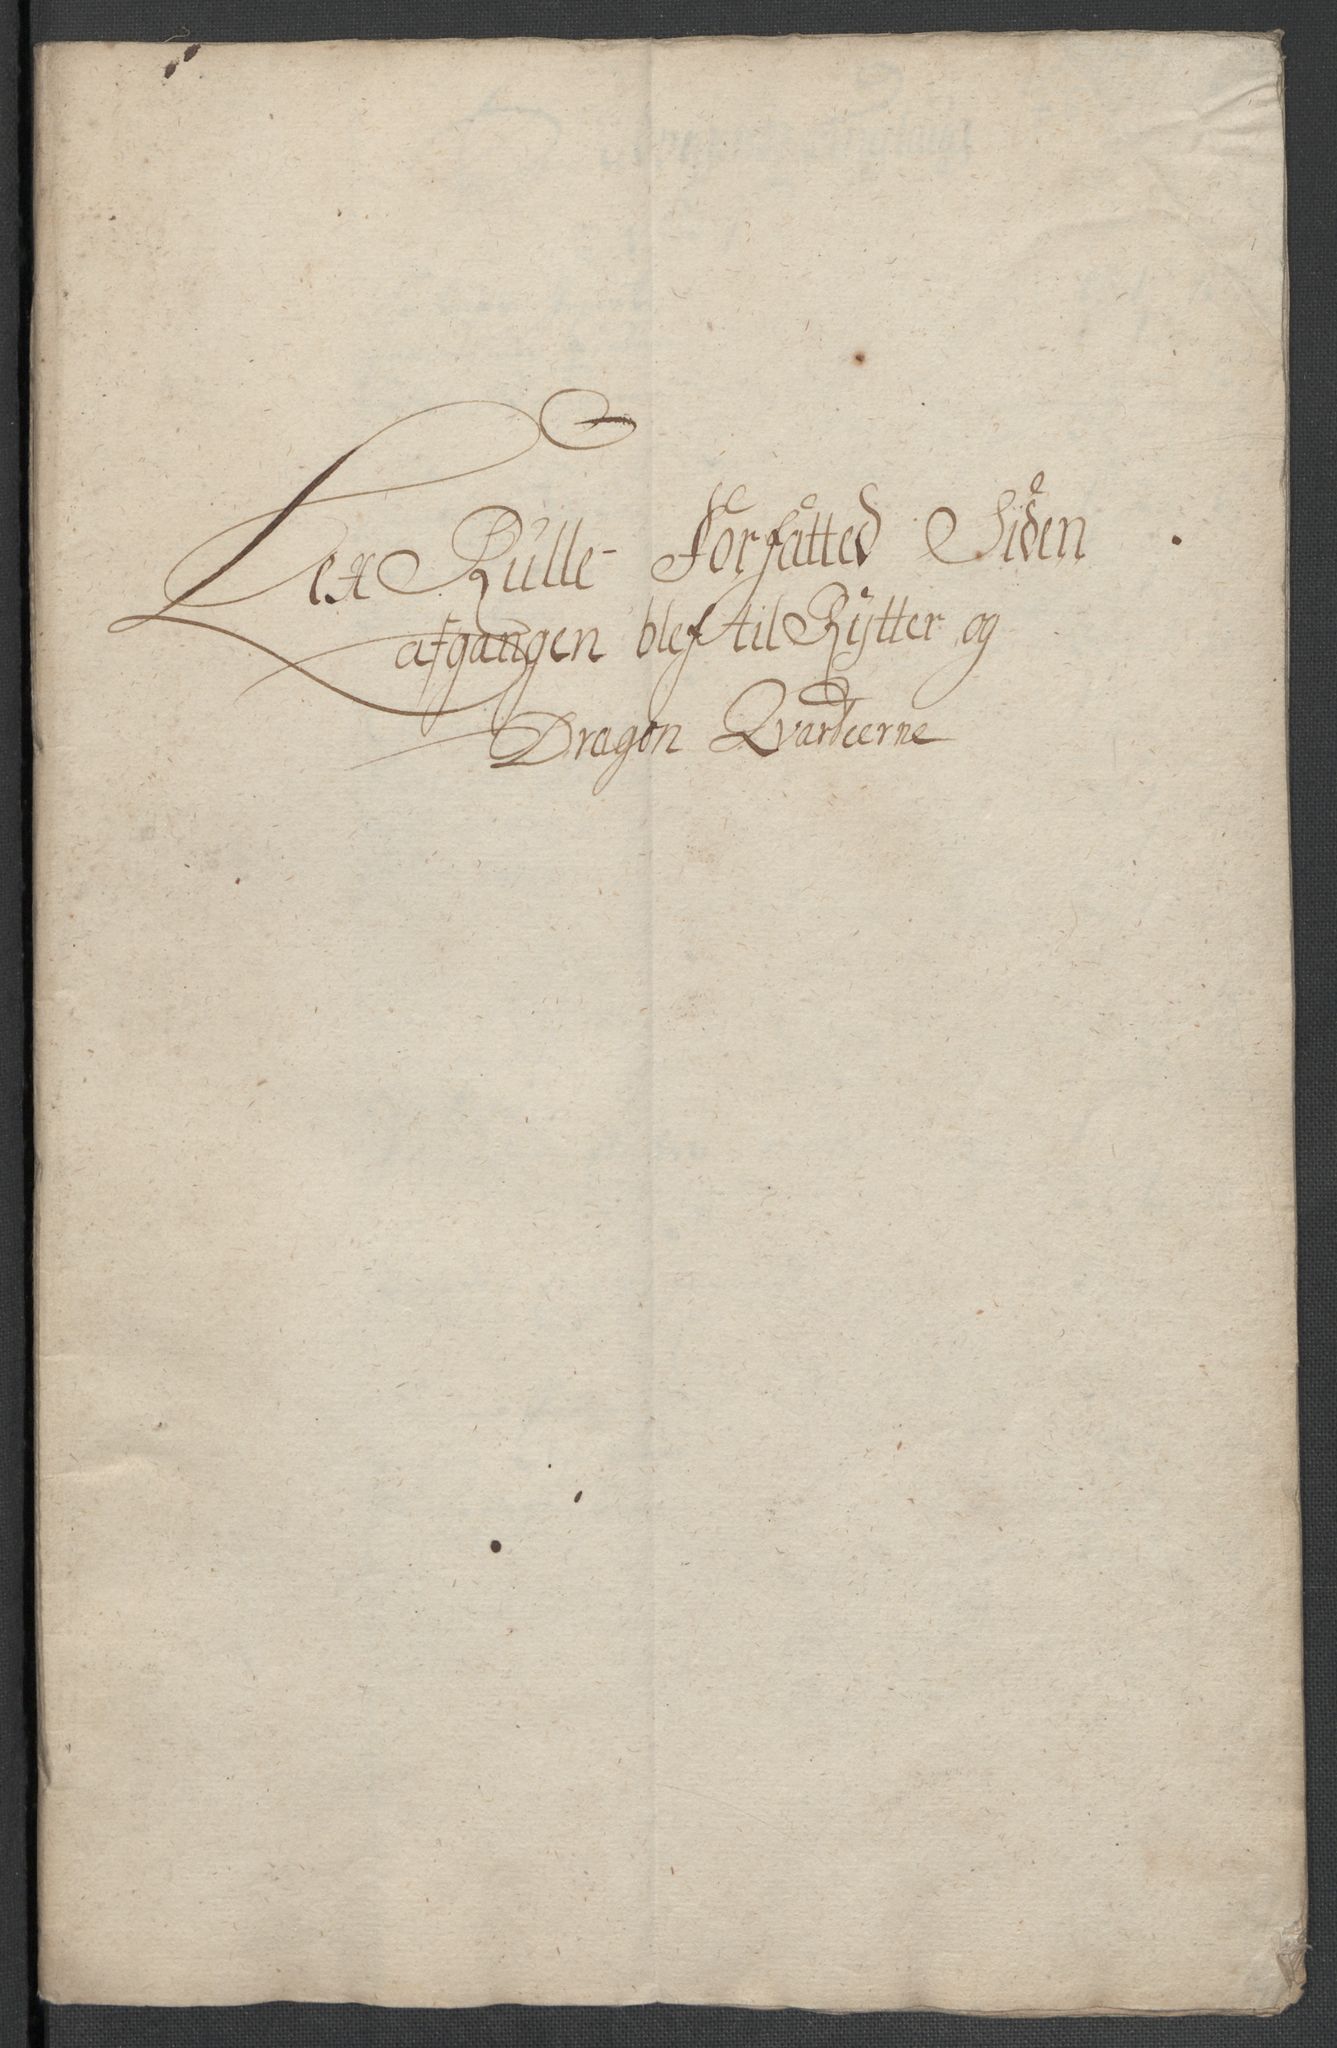 Leg Rulle Forfatted Siden
afgangen blef til Rÿtter og
Dragon Qvarteerne